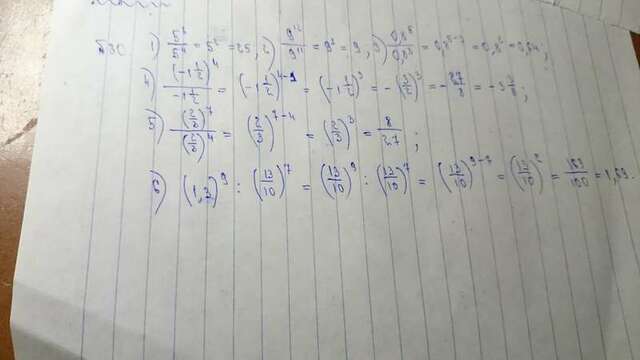 630 1) 5⁷/5⁵ = 5² = 25, 2) 9¹²/9¹¹ = 9¹ = 9, 3) 0,8⁵/0,8³ = 0,8⁵⁻³ = 0,8² = 0,64;
4) (-1 1/2)⁴/-1 1/2 = (-1 1/2)⁴⁻¹ = (-1 1/2)³ = -(3/2)³ = -27/8 = -3 3/8;
5) (2/3)⁷/(2/3)⁴ = (2/3)⁷⁻⁴ = (2/3)³ = 8/27;
6) (1,3)⁹ : (13/10)⁷ = (13/10)⁹ : (13/10)⁷ = (13/10)⁹⁻⁷ = (13/10)² = 169/100 = 1,69.